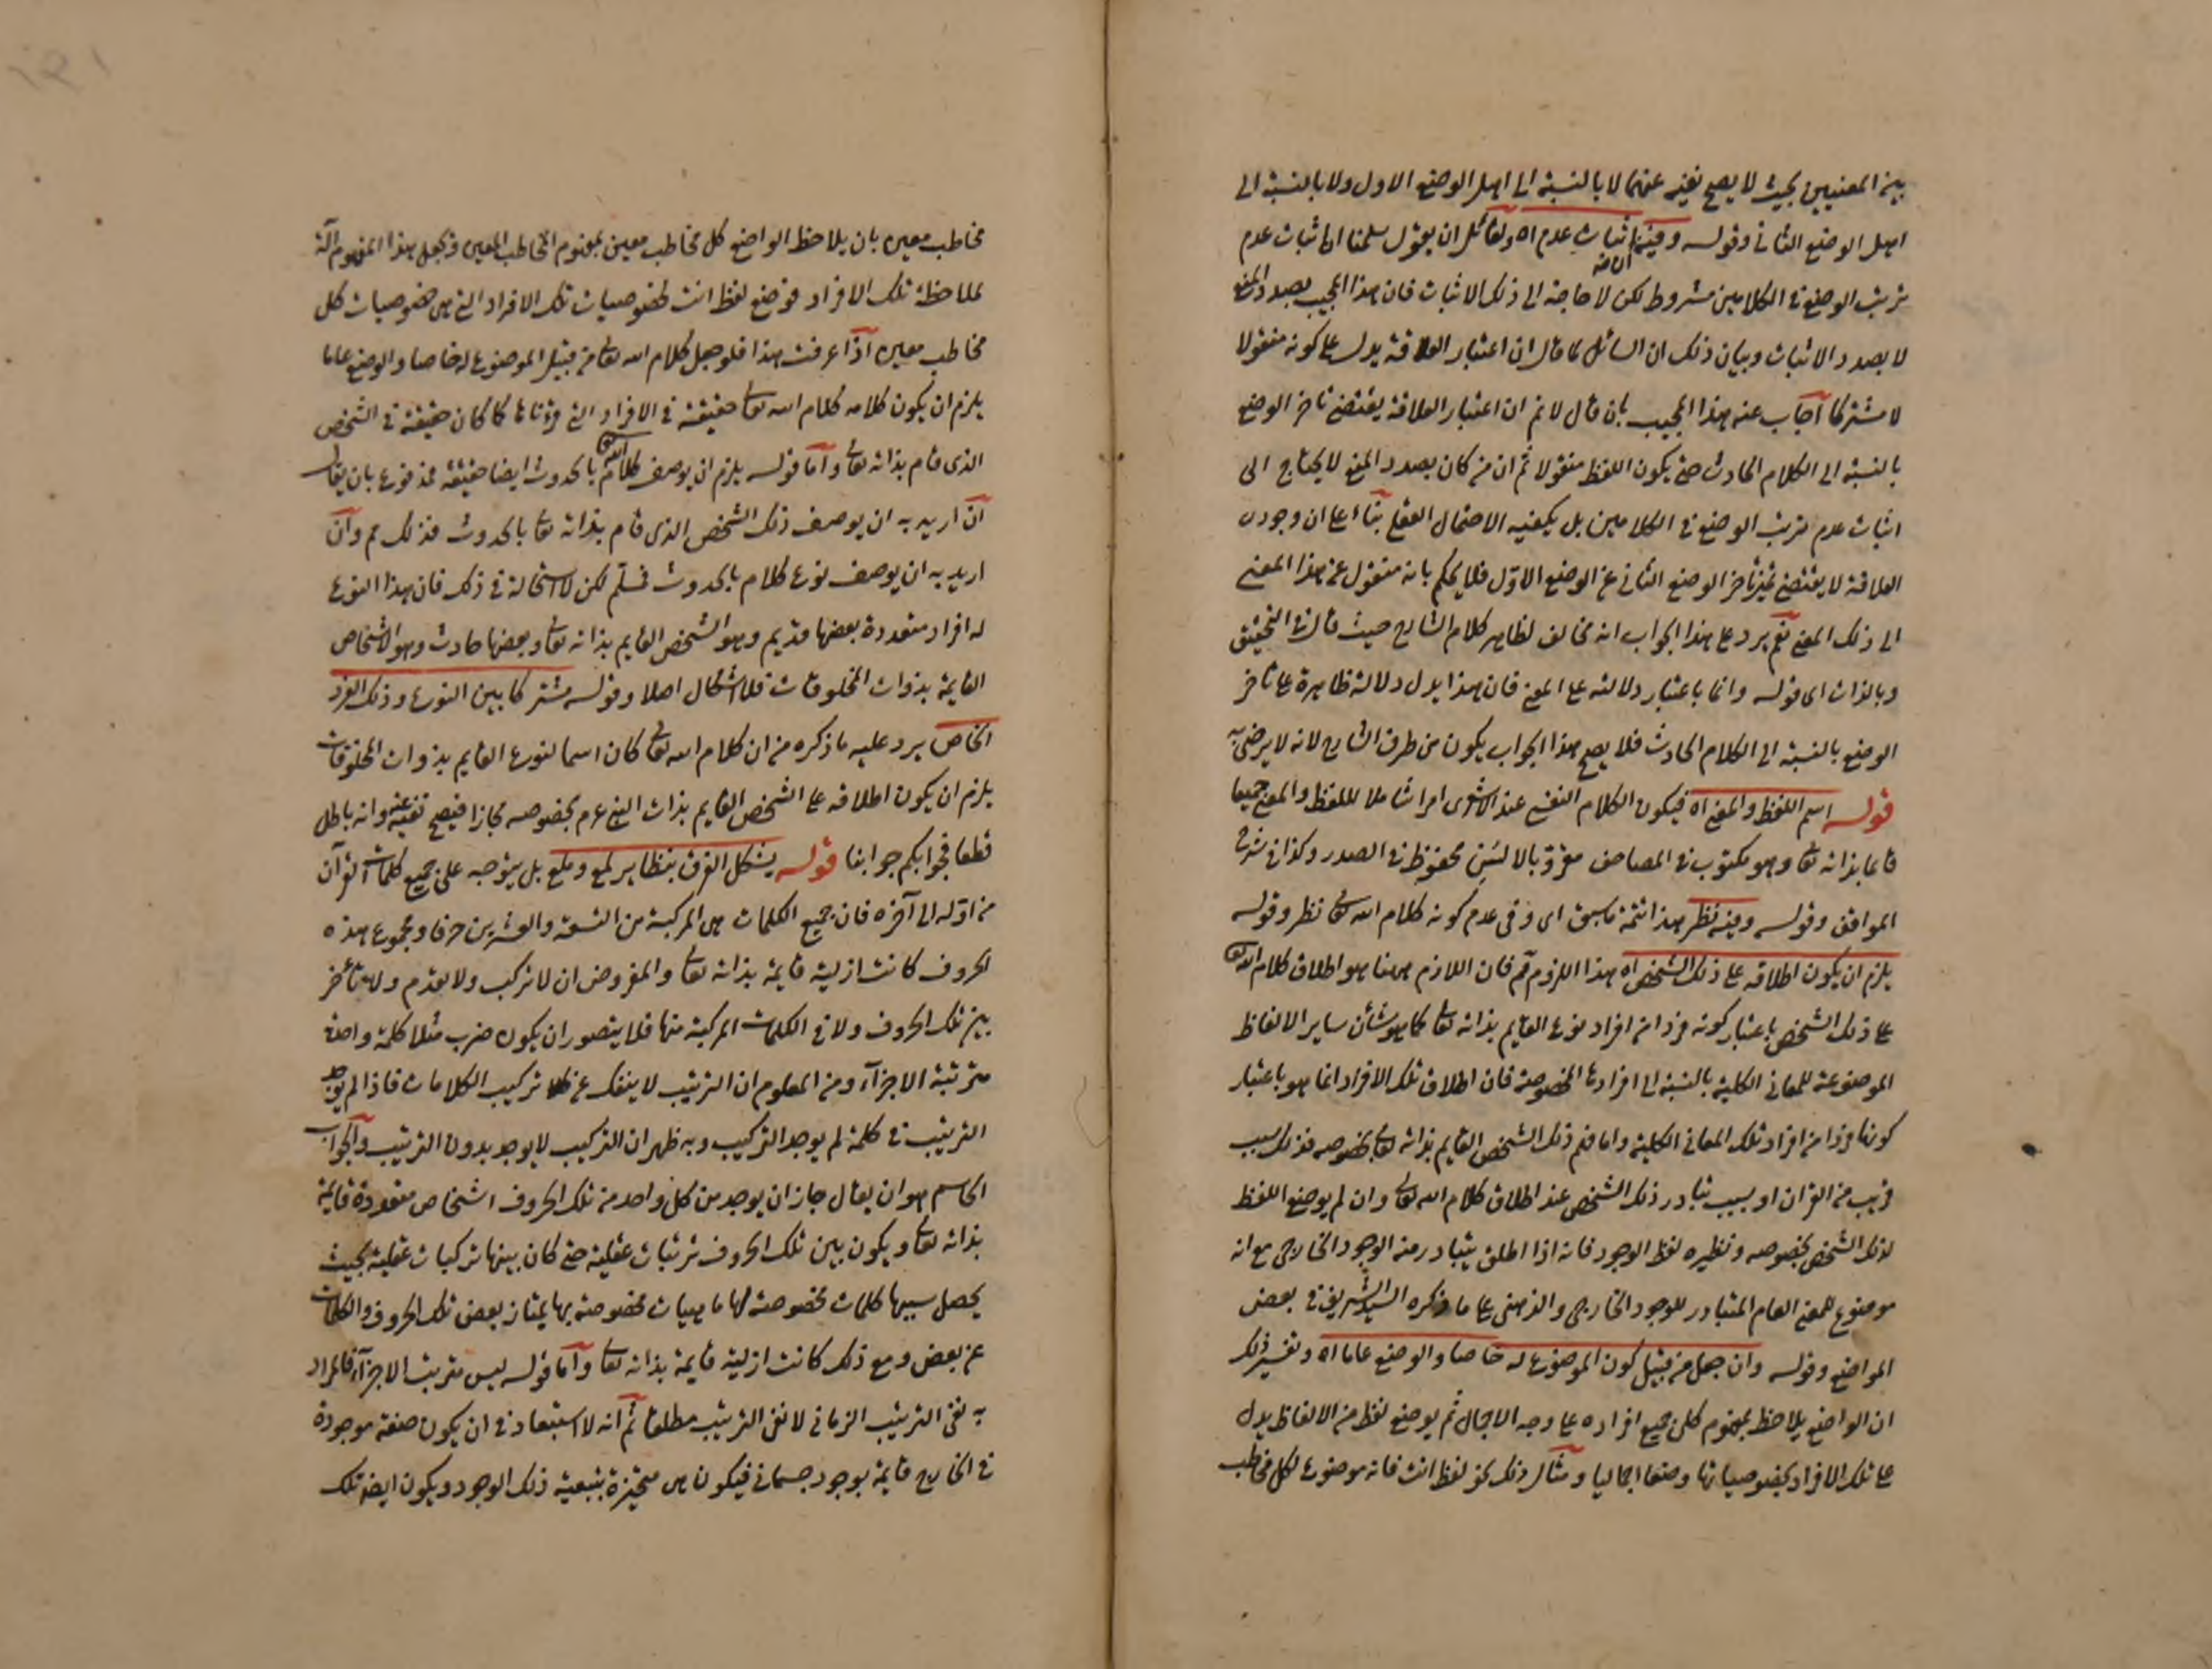 بين المعنيين بحيث لا يصح نفيه عنهما لا بالنسبة الى اهل الوضع الاول ولا بالنسبة الى
اهل الوضع الثانى وقوله اثبات عدم اه ولقائل ان يقول سلمنا ان اثبات عدم
ترتب الوضع فى الكلامين مشروط لكن لا حاجة الى ذلك الاثبات فان هذا المجيب بصدد المنع
لا بصدد الاثبات وبيان ذلك ان السائل لما قال ان اعتبار العلاقة يدل على كونه منقولا
لا مشتركا اجاب عنه هذا المجيب بان قال لا نم ان اعتبار العلاقة يقتضى تاخر الوضع
بالنسبة الى الكلام الحادث حتى يكون اللفظ منقولا ثم ان من كان بصدد المنع لا يحتاج الى
اثبات عدم ترتب الوضع فى الكلامين بل يكفيه الاحتمال العقلى بناء على ان وجود
العلاقة لا يقتضى تاخر الوضع الثانى عن الوضع الاول فلا يحكم بانه منقول عن هذا المعنى
الى ذلك المعنى نعم يرد على هذا الجواب انه مخالف لظاهر كلام الشارح حيث قال فى التحقيق
وبالذات اى قوله وانما باعتبار دلالته على المعنى فان هذا يدل دلالة ظاهرة على تاخر
الوضع بالنسبة الى الكلام الحادث فلا يصح هذا الجواب يكون من طرف الشارح لانه لا يرضى به
قوله اسم اللفظ والمعنى اه فيكون الكلام النفسى عند الاشعرى امرا شاملا للفظ والمعنى جميعا
قائما بذاته تعا وهو مكتوب فى المصاحف مقرو بالالسن محفوظ فى الصدر وكذا فى شرح
المواقف وقوله وفيه نظر هذا تتمة ما سبق اى وفى عدم كونه كلام الله تعا نظر وقوله
يلزم ان يكون اطلاقه على ذلك الشخص اه هذا اللزوم مم فان اللازم ههنا هو اطلاق كلام الله تعا
على ذلك الشخص باعتبار كونه فردا من افراد نوع القايم بذاته تعا كما هو شأن ساير الالفاظ
الموضوعة للمعانى الكلية بالنسبة الى افرادها المخصوصة فان اطلاق تلك الافراد انما هو باعتبار
كونها فردا من افراد تلك المعانى الكلية واما فهم ذلك الشخص القايم بذاته تعا بخصوصه فذلك بسبب
قريب من القران او بسبب تبادر ذلك الشخص عند اطلاق كلام الله تعا وان لم يوضع اللفظ
لذلك الشخص بخصوصه ونظيره لفظ الوجود فانه اذا اطلق يتبادر منه الوجود الخارجى مع انه
موضوع للمعنى العام المتبادر للوجود الخارجى والذهنى على ما ذكره السيد الشريف فى بعض
المواضع وقوله وان جعل من قبيل كون الموضوع له خاصا والوضع عاما اه وتفسير ذلك
ان الواضع يلاحظ بمفهوم كلى جميع افراده على وجه الاجمال ثم يوضع لفظ من الالفاظ يدل
على تلك الافراد بخصوصياتها وضعا اجماليا ومثال ذلك نحو لفظ انت فانه موضوع لكل مخاطب
مخاطب معين بان يلاحظ الواضع كل مخاطب معين بمفهوم المخاطب المعين ويجعل هذا المفهوم آلة
لملاحظة تلك الافراد فوضع لفظ انت لخصوصيات تلك الافراد التى هى خصوصيات كل
مخاطب معين اذا عرفت هذا فلو جعل كلام الله تعا من قبيل الموضوع له خاصا والوضع عاما
يلزم ان يكون كلامه كلام الله تعا حقيقة فى الافراد التى قرأناها كما كان حقيقة فى الشخص
الذى قام بذاته تعا واما قوله يلزم ان يوصف كلام الله تعا بالحدوث ايضا حقيقة فمدفوع بان يقال
ان اريد به ان يوصف ذلك الشخص الذى قام بذاته تعا بالحدوث فذلك مم وان
اريد به ان يوصف نوع كلام بالحدوث فسلم لكن لا استحالة فى ذلك فان هذا النوع
له افراد متعددة بعضها قديم وهو الشخص القايم بذاته تعا وبعضها حادث وهو الاشخاص
القايمة بذوات المخلوقات فلا اشكال اصلا وقوله مشتركا بين النوع وذلك الفرد
الخاص يرد عليه ما ذكره من ان كلام الله تعا كان اسما لنوع القايم بذوات المخلوقات
يلزم ان يكون اطلاقه على الشخص القايم بذات بخصوصه مجازا فيصح نفيه عنه وانه باطل
قطعا فجوابكم جوابنا قوله يشكل الفرق بنظاير لمع وملع بل يتوجه على جميع كلمات القرآن
من اوله الى آخره فان جميع الكلمات هى المركبة من التسعة والعشرين حرفا ومجموع هذه
الحروف كانت ازلية قايمة بذاته تعا والمفروض ان لا تركب ولا تقدم ولا تأخر
بين تلك الحروف ولا فى الكلمات المركبة منها فلا يتصور ان يكون ضرب مثلا كلمة واحدة
مترتبة الاجزآء ومن المعلوم ان الترتيب لا ينفك عن تركيب الكلامات فاذا لم يوجد
الترتيب فى كلمة لم يوجد التركيب وبه ظهر ان التركيب لا يوجد بدون الترتيب والجواب
الحاسم هو ان يقال جاز ان يوجد من كل واحد من تلك الحروف اشخاص متعددة قايمة
بذاته تعا ويكون بين تلك الحروف ترتبات عقلية حتى كان بينها تركبات عقلية بحيث
يحصل بسببها كلمات مخصوصة لها ماهيات مخصوصة بها يمتاز بعض تلك الحروف والكلمات
عن بعض ومع ذلك كانت ازلية قايمة بذاته تعا واما قوله ليس مترتبت الاجزآء فالمراد
به نفى الترتيب الزمانى لا نفى الترتيب مطلقا ثم انه لا استبعاد فى ان يكون صفة موجودة
فى الخارج قايمة بوجود جسمانى فيكون هى متحيزة بتبعية ذلك الوجود ويكون ايضا تلك